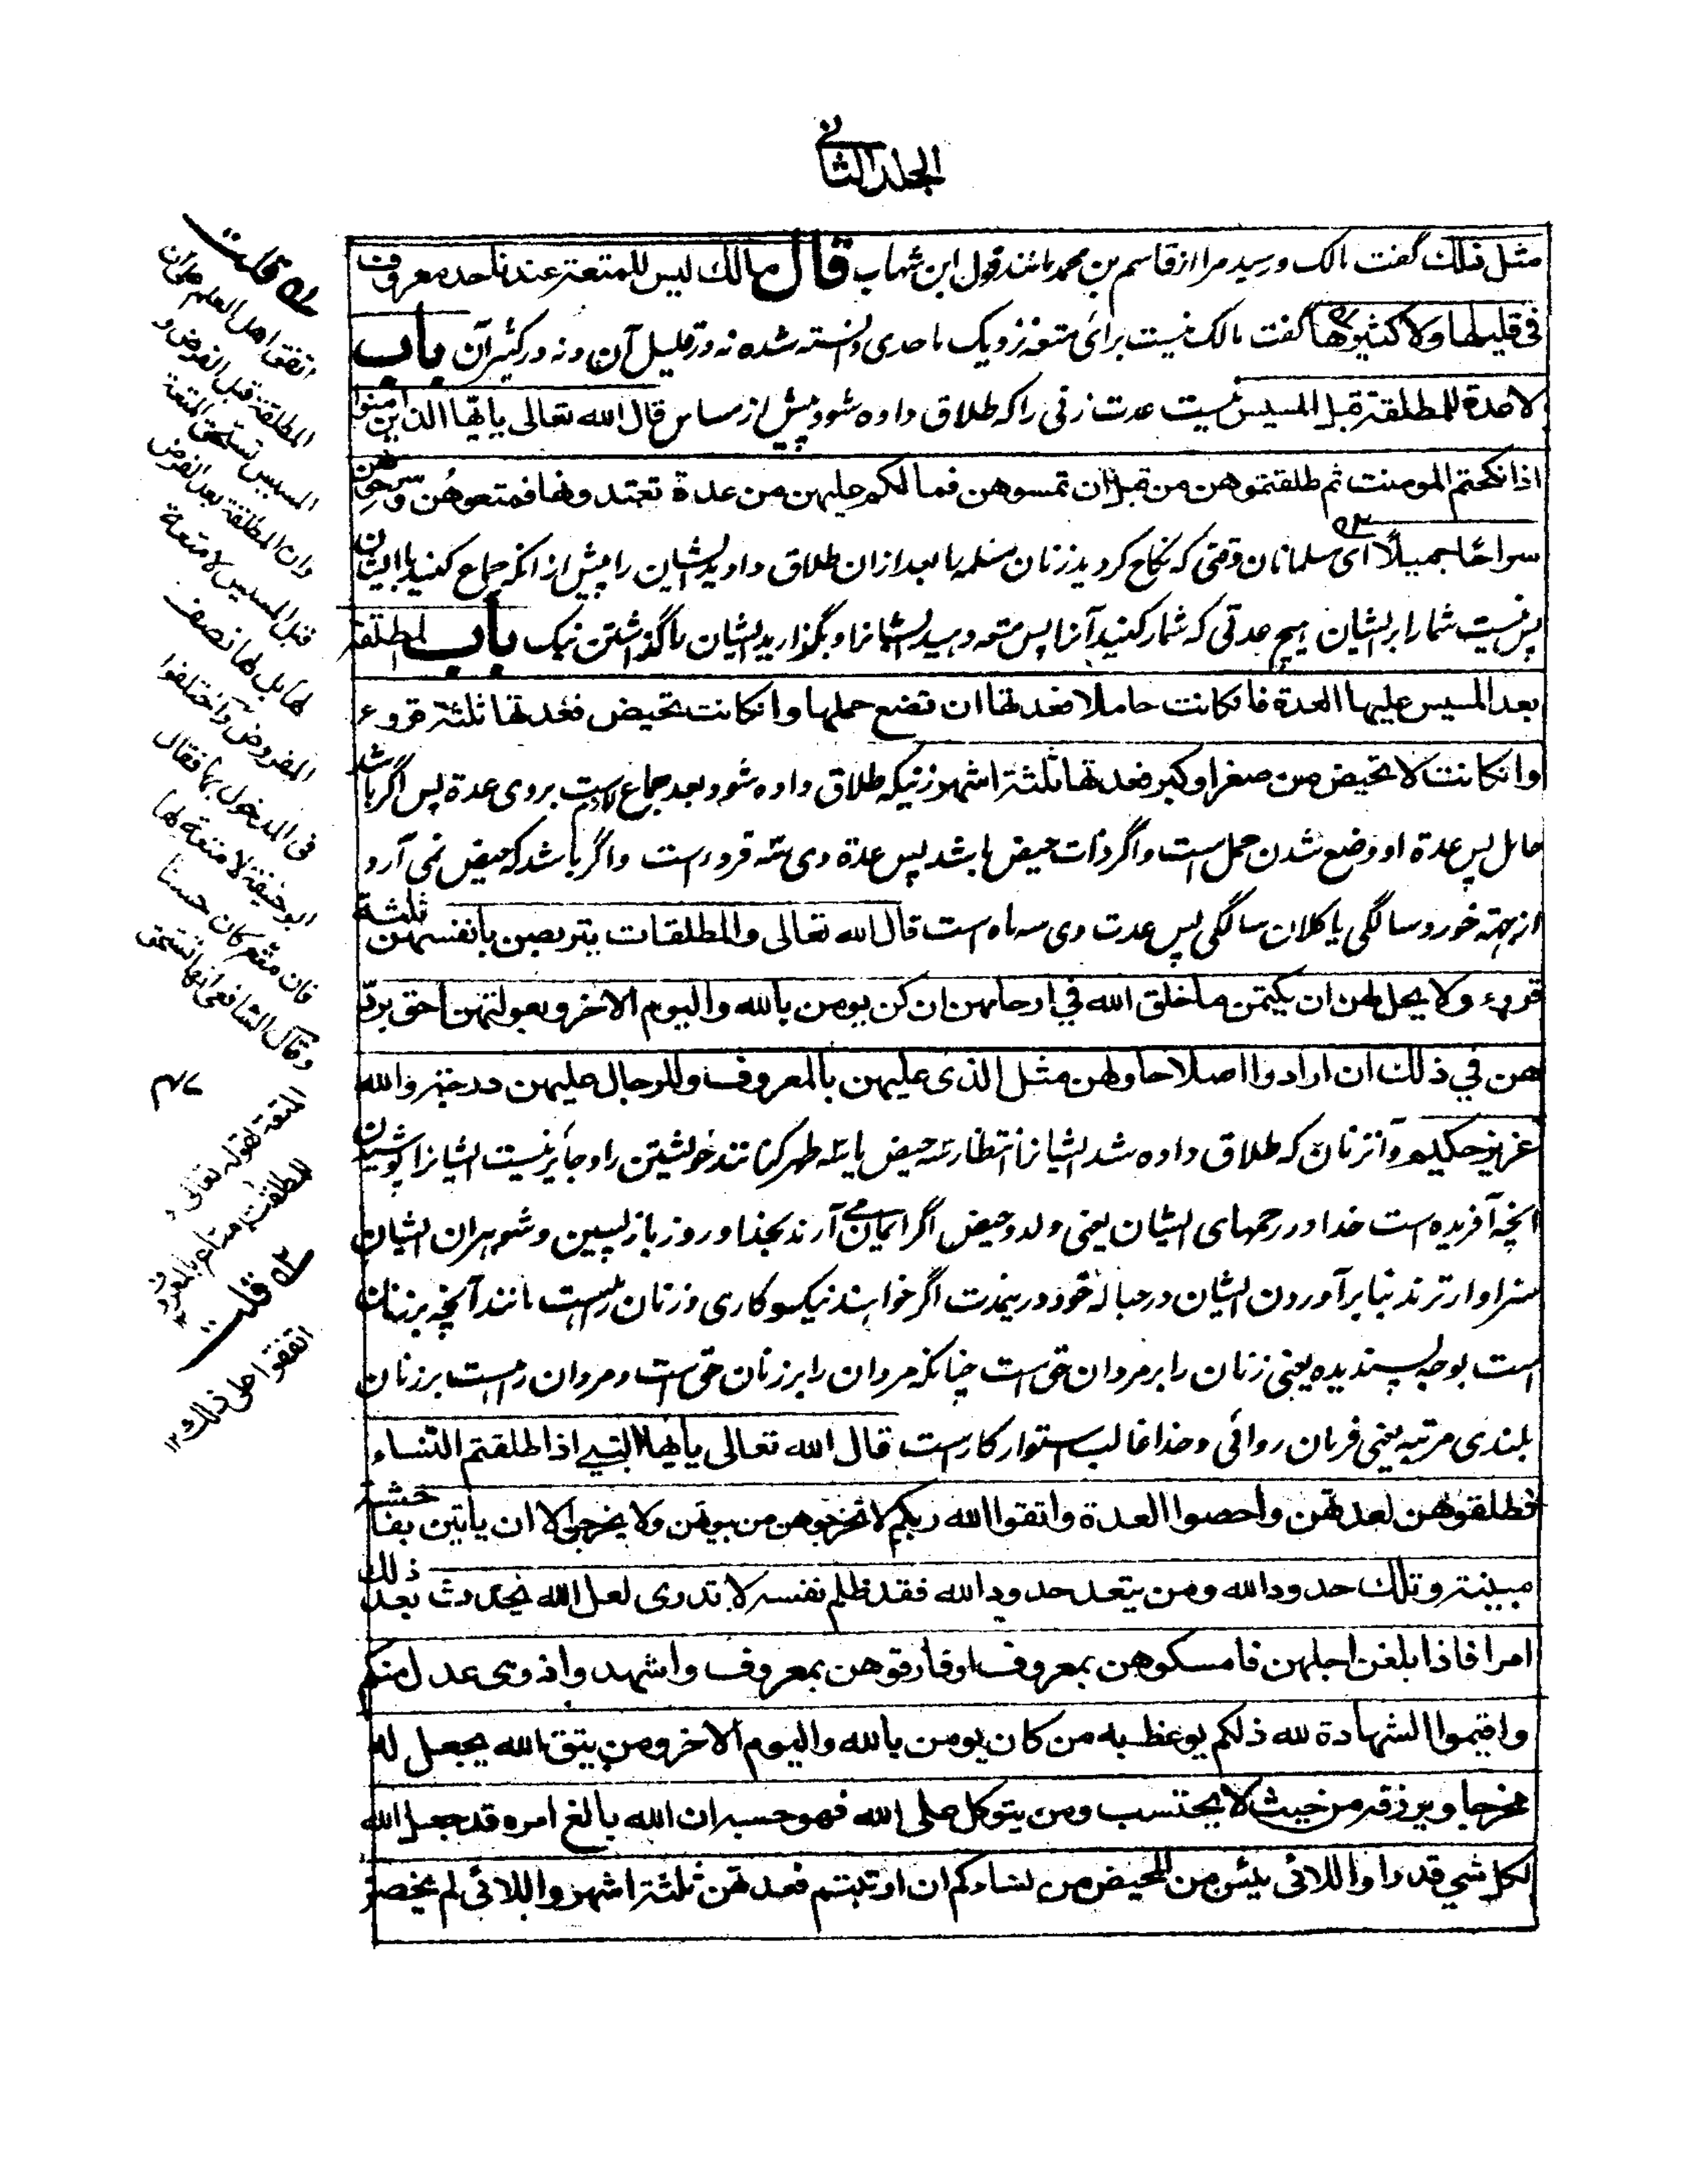 الجلد الثانی
مثل ذلك گفت مالک و رسید مرا از قاسم بن محمد مانند قول ابن شهاب قال مالك ليس للمتعة عندنا حد معروف
فی قليلها ولا كثيرها گفت مالک نیست برائ متعه نزدیک ما حدی دانسته شده نه در قلیل آن و نه در کثیر آن باب
لا عدة للمطلقة قبل المسيس نیست عدت زنی را که طلاق داده شود پیش از مساس قال الله تعالى يايها الذين امنوا
اذا نكحتم المومنت ثم طلقتموهن من قبل ان تمسوهن فما لكم عليهن من عدة تعتدونها فمتعوهن وسرحوهن
سراحا جميلا ای مسلمانان وقتی که نکاح کردید زنان مسلمه را بعد ازان طلاق دادید ایشان را پیش از انکه جماع کنید با ایشان
پس نیست شما را بر ایشان هیچ عدتی که شمار کنید آنرا پس متعه دهید ایشانرا و بگذارید ایشان را گذاشتن نیک باب المطلقة
بعد المسيس عليها العدة فان كانت حاملا فعدتها ان تضع حملها وان كانت تحيض فعدتها ثلثة قروء
وان كانت لا تحيض من صغر او كبر فعدتها ثلثة اشهر زنیکه طلاق داده شود بعد جماع لازم است بروی عدة پس اگر باشد
حامل پس عدة او وضع شدن حمل است و اگر ذات حیض باشد پس عدة وی سه قروء است و اگر باشد که حیض نمی آرد
از جهة خورد سالگی یا کلان سالگی پس عدت وی سه ماه است قال الله تعالى والمطلقات يتربصن بانفسهن ثلثة
قروء ولا يحل لهن ان يكتمن ما خلق الله في ارحامهن ان كن يومن بالله واليوم الاخر وبعولتهن احق برد
هن في ذلك ان ارادوا اصلاحا ولهن مثل الذى عليهن بالمعروف وللرجال عليهن درجة والله
عزيز حكيم و آن زنان که طلاق داده شد ایشانرا انتظار سه حیض یا سه طهر کنانند خویشتن را و جایز نیست ایشانرا پوشیدن
انچه آفریده است خدا در رحمهای ایشان یعنی ولد و حیض اگر ایمان می آرند بخدا و روز باز پسین و شوهران ایشان
سزاوار ترند بباز آوردن ایشان در حباله خود درینمدت اگر خواهند نیکوکاری و زنان راست مانند آنچه بر زنان
است بوجه پسندیده یعنی زنان را بر مردان حق است چنانکه مردان را بر زنان حق است و مردان راست بر زنان
بلندی مرتبه یعنی فرمان روائی و خدا غالب استوار کار است قال الله تعالى يايها النبي اذا طلقتم النساء
فطلقوهن لعدتهن واحصوا العدة واتقوا الله ربكم لا تخرجوهن من بيوتهن ولا يخرجن الا ان ياتين بفاحشة
مبينة وتلك حدود الله ومن يتعد حدود الله فقد ظلم نفسه لا تدرى لعل الله يحدث بعد ذلك
امرا فاذا بلغن اجلهن فامسكوهن بمعروف او فارقوهن بمعروف واشهدوا ذوى عدل منكم
واقيموا الشهادة لله ذلكم يوعظ به من كان يومن بالله واليوم الاخر ومن يتق الله يجعل له
مخرجا ويرزقه من حيث لا يحتسب ومن يتوكل على الله فهو حسبه ان الله بالغ امره قد جعل الله
لكل شي قدرا واللائى يئسن من المحيض من نساءكم ان ارتبتم فعدتهن ثلثة اشهر واللائى لم يحضن
له قلت
اتفق اهل العلم على ان
المطلقة قبل الفرض و
المسيس تستحق المتعة
وان المطلقة بعد الفرض
قبل المسيس لا متعة
لها بل لها نصف
المفروض واختلفوا
فى المدخول بها فقال
ابو حنيفة لا متعة لها
فان متع كان حسنا
وقال الشافعى انها تستحق
المتعة لقوله تعالى و
للمطلقت متاع بالمعروف
۲ه قلت
اتفقوا على ذلك ۱۲